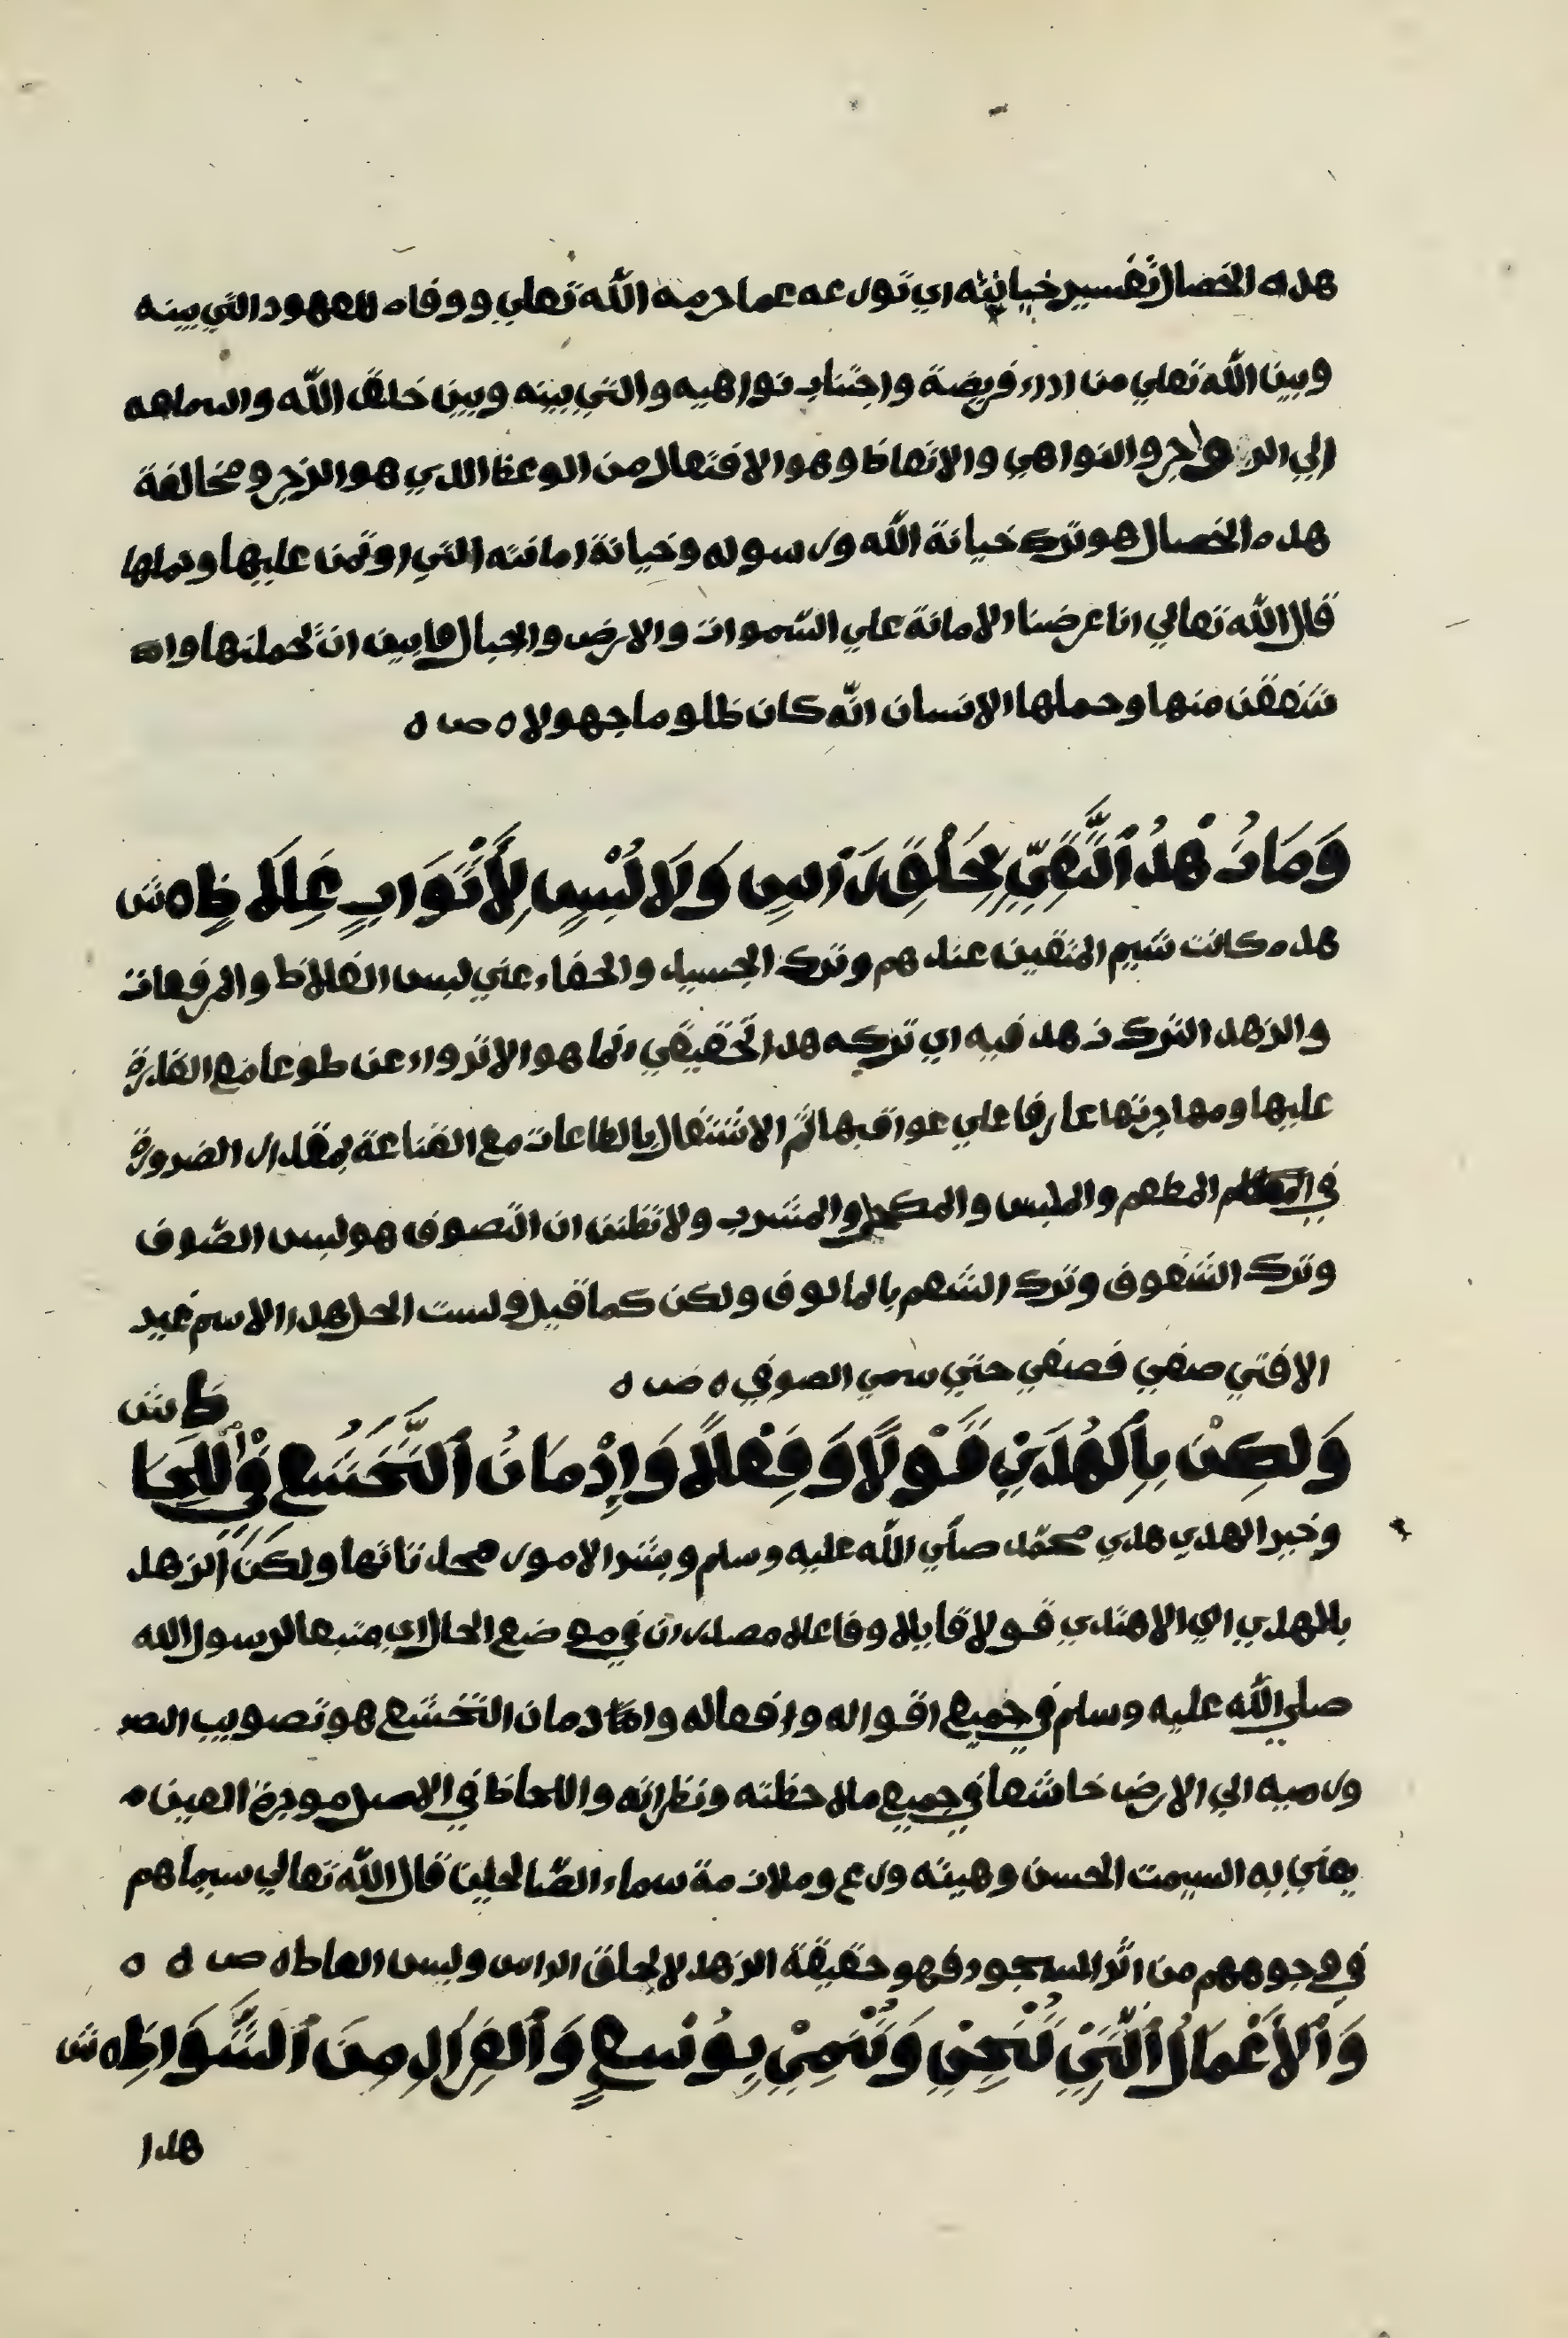 هذه الخصال تفسير خيانته اي تورعه عما حرمه الله تعلي ووفاه للعهود التي بينه
وبين الله تعلي من اداء فريضة واجتناب نواهيه والتي بينه وبين خلق الله والسماعه
إلي الزواجر والنواهي والاتعاظ وهو الافتعال من الوعظ الذي هو الزجر ومخالفة
هذه الخصال هو ترك خيانة الله ورسوله وخيانة امانته التي اوتمن عليها وحملها
قال الله تعالي انا عرضنا الامانة علي السّموات والارض والجبال فابين ان تحملنها وا
شفقن منها وحملها الانسان انّه كان ظلوما جهولا ه ص ه
وَمَا زُهْدُ ٱلتَّقِيِّ بِحَلْقِ رَأسٍ وَلَا لُبْسٍ لِأَثْوَابٍ غِلَاظِ ه ش
هذه كانت شيم المتقين عندهم وترك الجسيد والحفاء عني لبس الغلاظ والمرفعات
والزهد الترك زهد فيه اي تركه هذا تحقيقي انما هو الانزواء عن طوعا مع القدرة
عليها ومهاجرتها عارفا علي عواقبها ثم الاشتغال بالطاعات مع القناعة بمقدار الضرورة
في المطعم والملبس والمشرب ولا تظنن ان التصوف هو لبس الصّوف
وترك الشغوف وترك الشعم بالمالوف ولكن كما قيل ولست انحل هذا الاسم غير
الافتي صفي فصفي حتي سمي الصوفي ه ض ه
ظ ش
وَلَكِنْ بِٱلْهُدَيٰ قَوْلًا وَفِعْلًا وَإِدْمَانُ ٱلتَّخَشُّعِ فِي ٱللِّحَا
وخير الهدي هدي محمّد صلّي الله عليه وسلم وشر الامور محدثاتها ولكن الزهد
بالهدي اي الاهتدي قولا قايلا وفاعلا مصدران في موضع الحال اي متبعا لرسول الله
صلي الله عليه وسلم في جميع اقواله وافعاله وامّا ادمان التخشع هو تصويب الصر
ورميه الي الارض خاشعا في جميع ملاحظته ونظراته واللحاظ في الاصل موخرة العين ه
يعني به السيمت الحسن وهيئه ورع وملازمة سماء الصّالحين قال الله تعالي سيماهم
في وجوههم من اثر السجود فهو حقيقة الزهد لا بحلق الراس ولبس الغاظ ه ص ه ه
وَٱلْأَعْمَالُ ٱلَّتِي تُنْجِي وَتُنْمِيْ بِوُسْعٍ وَٱلفِرَارِ مِنَ ٱلشَّوَاظِ ه ش
هذا